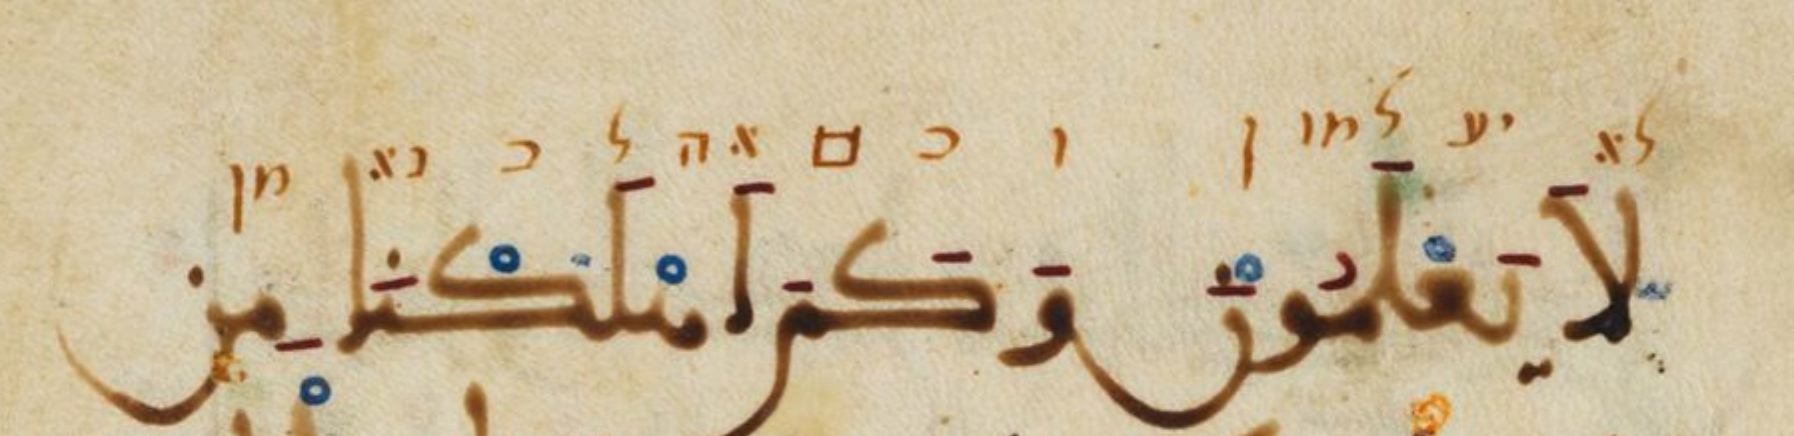 לא יע למו ן ו כ ם אה ל כ נא מן
لَا يَعْلَمُونَ وَكَمَ اَهْلَكْنَا مِن